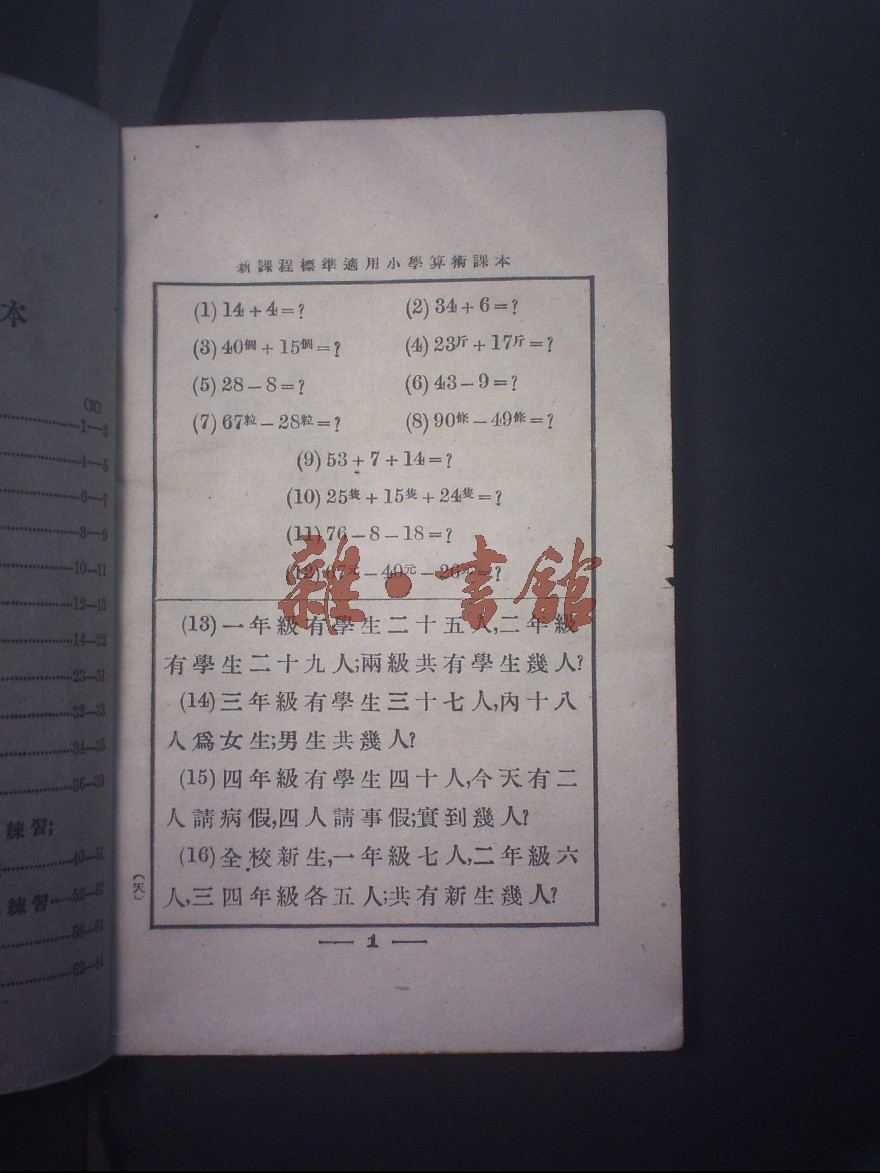 新課程標準適用小學算術課本
(1) 14+4=? (2) 34+6=?
(3) 40個+15個=? (4) 23斤+17斤=?
(5) 28-8=? (6) 43-9=?
(7) 67粒-28粒=? (8) 90條-49條=?
(9) 53+7+14=?
(10) 25隻+15隻+24隻=?
(11) 76-8-18=?
(12) 67元-40元-26元=?
(13) 一年級有學生二十五人,二年級
有學生二十九人;兩級共有學生幾人?
(14) 三年級有學生三十七人,內十八
人爲女生;男生共幾人?
(15) 四年級有學生四十人,今天有二
人請病假,四人請事假;實到幾人?
(16) 全校新生,一年級七人,二年級六
人,三四年級各五人;共有新生幾人?
— 1 —
雜·書館
本
(頁)
1—3
4—5
6—7
8—9
10—11
12—13
14—22
23—31
32—33
34—35
36—39
練習;
40—51
練習 52—57
58—61
62—64